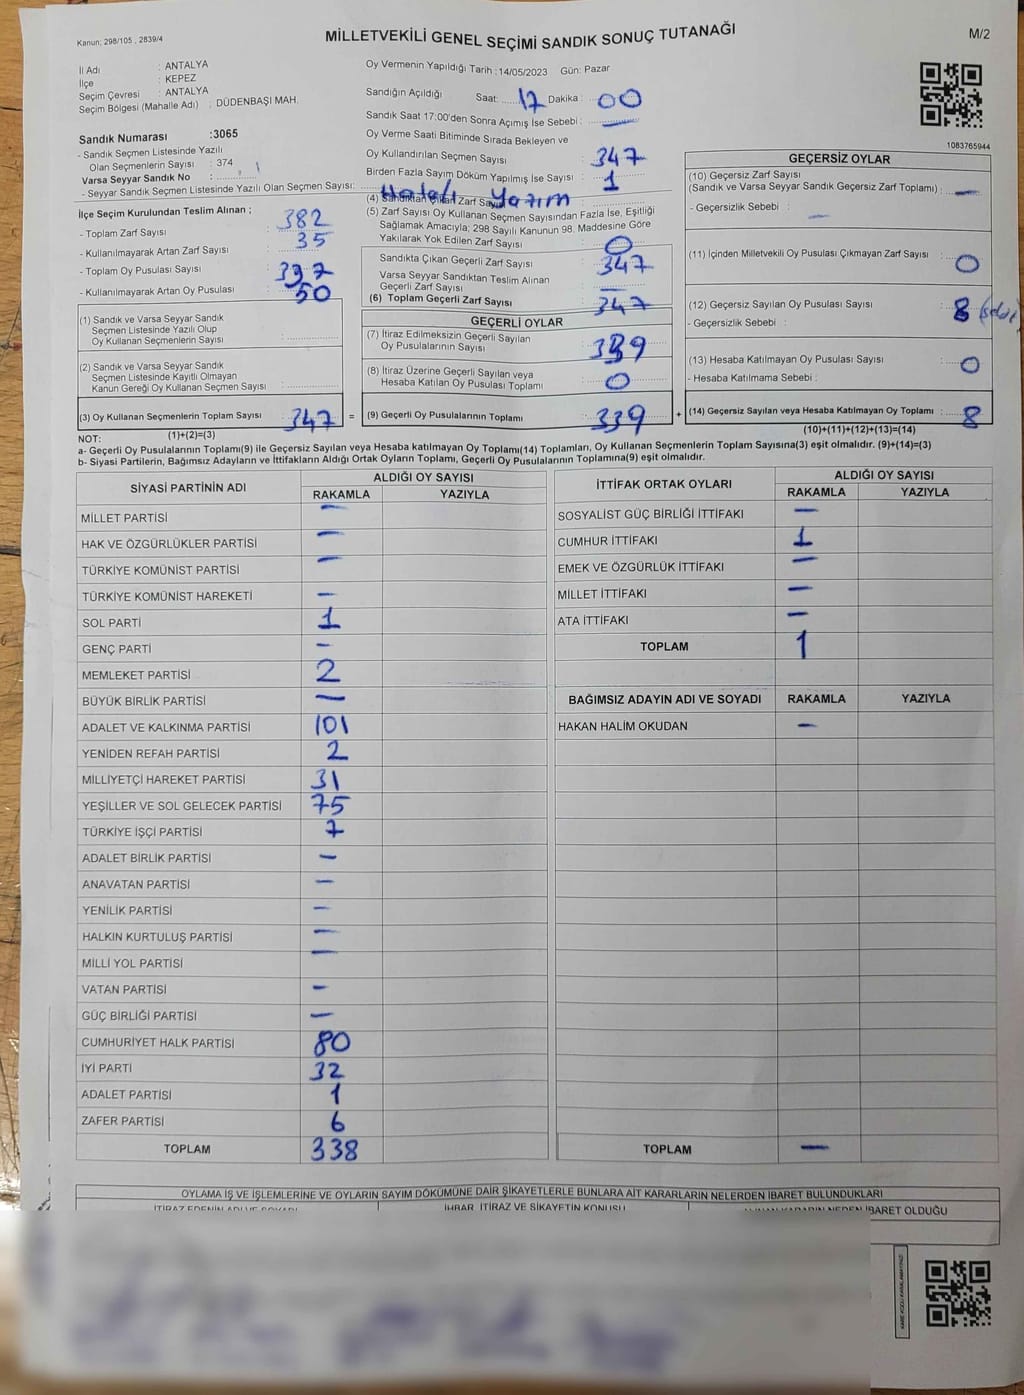 Kanun; 298/105 , 2839/4
MİLLETVEKİLİ GENEL SEÇİMİ SANDIK SONUÇ TUTANAĞI
M/2
İl Adı : ANTALYA
İlçe : KEPEZ
Seçim Çevresi : ANTALYA
Seçim Bölgesi (Mahalle Adı) : DÜDENBAŞI MAH.
Sandık Numarası :3065
- Sandık Seçmen Listesinde Yazılı
Olan Seçmenlerin Sayısı : 374
Varsa Seyyar Sandık No :
- Seyyar Sandık Seçmen Listesinde Yazılı Olan Seçmen Sayısı:
İlçe Seçim Kurulundan Teslim Alınan ;
- Toplam Zarf Sayısı : 382
- Kullanılmayarak Artan Zarf Sayısı : 35
- Toplam Oy Pusulası Sayısı : 397
- Kullanılmayarak Artan Oy Pusulası : 50
(1) Sandık ve Varsa Seyyar Sandık
Seçmen Listesinde Yazılı Olup
Oy Kullanan Seçmenlerin Sayısı :
(2) Sandık ve Varsa Seyyar Sandık
Seçmen Listesinde Kayıtlı Olmayan
Kanun Gereği Oy Kullanan Seçmen Sayısı :
(3) Oy Kullanan Seçmenlerin Toplam Sayısı : 347 =
(1)+(2)=(3)
Oy Vermenin Yapıldığı Tarih :14/05/2023 Gün: Pazar
Sandığın Açıldığı Saat: 17 Dakika : 00
Sandık Saat 17:00'den Sonra Açımış İse Sebebi : —
Oy Verme Saati Bitiminde Sırada Bekleyen ve
Oy Kullandırılan Seçmen Sayısı : 347
Birden Fazla Sayım Döküm Yapılmış İse Sayısı : 1
(4) Sandıktan Çıkan Zarf Sayısı Hatalı Yazım
(5) Zarf Sayısı Oy Kullanan Seçmen Sayısından Fazla İse, Eşitliği
Sağlamak Amacıyla; 298 Sayılı Kanunun 98. Maddesine Göre
Yakılarak Yok Edilen Zarf Sayısı : 0
Sandıkta Çıkan Geçerli Zarf Sayısı : 347
Varsa Seyyar Sandıktan Teslim Alınan
Geçerli Zarf Sayısı : —
(6) Toplam Geçerli Zarf Sayısı : 347
GEÇERLİ OYLAR
(7) İtiraz Edilmeksizin Geçerli Sayılan
Oy Pusulalarının Sayısı : 339
(8) İtiraz Üzerine Geçerli Sayılan veya
Hesaba Katılan Oy Pusulası Toplamı : 0
(9) Geçerli Oy Pusulalarının Toplamı : 339 +
1083765944
GEÇERSİZ OYLAR
(10) Geçersiz Zarf Sayısı
(Sandık ve Varsa Seyyar Sandık Geçersiz Zarf Toplamı) : —
- Geçersizlik Sebebi : —
(11) İçinden Milletvekili Oy Pusulası Çıkmayan Zarf Sayısı : 0
(12) Geçersiz Sayılan Oy Pusulası Sayısı : 8
- Geçersizlik Sebebi :
(13) Hesaba Katılmayan Oy Pusulası Sayısı : 0
- Hesaba Katılmama Sebebi :
(14) Geçersiz Sayılan veya Hesaba Katılmayan Oy Toplamı : 8
(10)+(11)+(12)+(13)=(14)
NOT:
a- Geçerli Oy Pusulalarının Toplamı(9) ile Geçersiz Sayılan veya Hesaba katılmayan Oy Toplamı(14) Toplamları, Oy Kullanan Seçmenlerin Toplam Sayısına(3) eşit olmalıdır. (9)+(14)=(3)
b- Siyasi Partilerin, Bağımsız Adayların ve İttifakların Aldığı Ortak Oyların Toplamı, Geçerli Oy Pusulalarının Toplamına(9) eşit olmalıdır.
SİYASİ PARTİNİN ADI ALDIĞI OY SAYISI
RAKAMLA YAZIYLA
MİLLET PARTİSİ —
HAK VE ÖZGÜRLÜKLER PARTİSİ —
TÜRKİYE KOMÜNİST PARTİSİ —
TÜRKİYE KOMÜNİST HAREKETİ —
SOL PARTİ 1
GENÇ PARTİ —
MEMLEKET PARTİSİ 2
BÜYÜK BİRLİK PARTİSİ —
ADALET VE KALKINMA PARTİSİ 101
YENİDEN REFAH PARTİSİ 2
MİLLİYETÇİ HAREKET PARTİSİ 31
YEŞİLLER VE SOL GELECEK PARTİSİ 75
TÜRKİYE İŞÇİ PARTİSİ 7
ADALET BİRLİK PARTİSİ —
ANAVATAN PARTİSİ —
YENİLİK PARTİSİ —
HALKIN KURTULUŞ PARTİSİ —
MİLLİ YOL PARTİSİ —
VATAN PARTİSİ —
GÜÇ BİRLİĞİ PARTİSİ —
CUMHURİYET HALK PARTİSİ 80
İYİ PARTİ 32
ADALET PARTİSİ 1
ZAFER PARTİSİ 6
TOPLAM 338
İTTİFAK ORTAK OYLARI ALDIĞI OY SAYISI
RAKAMLA YAZIYLA
SOSYALİST GÜÇ BİRLİĞİ İTTİFAKI —
CUMHUR İTTİFAKI 1
EMEK VE ÖZGÜRLÜK İTTİFAKI —
MİLLET İTTİFAKI —
ATA İTTİFAKI —
TOPLAM 1
BAĞIMSIZ ADAYIN ADI VE SOYADI RAKAMLA YAZIYLA
HAKAN HALİM OKUDAN —
TOPLAM —
OYLAMA İŞ VE İŞLEMLERİNE VE OYLARIN SAYIM DÖKÜMÜNE DAİR ŞİKAYETLERLE BUNLARA AİT KARARLARIN NELERDEN İBARET BULUNDUKLARI
İTİRAZ EDENİN ADI VE SOYADI İHBAR, İTİRAZ VE ŞİKAYETİN KONUSU İBARET OLDUĞU